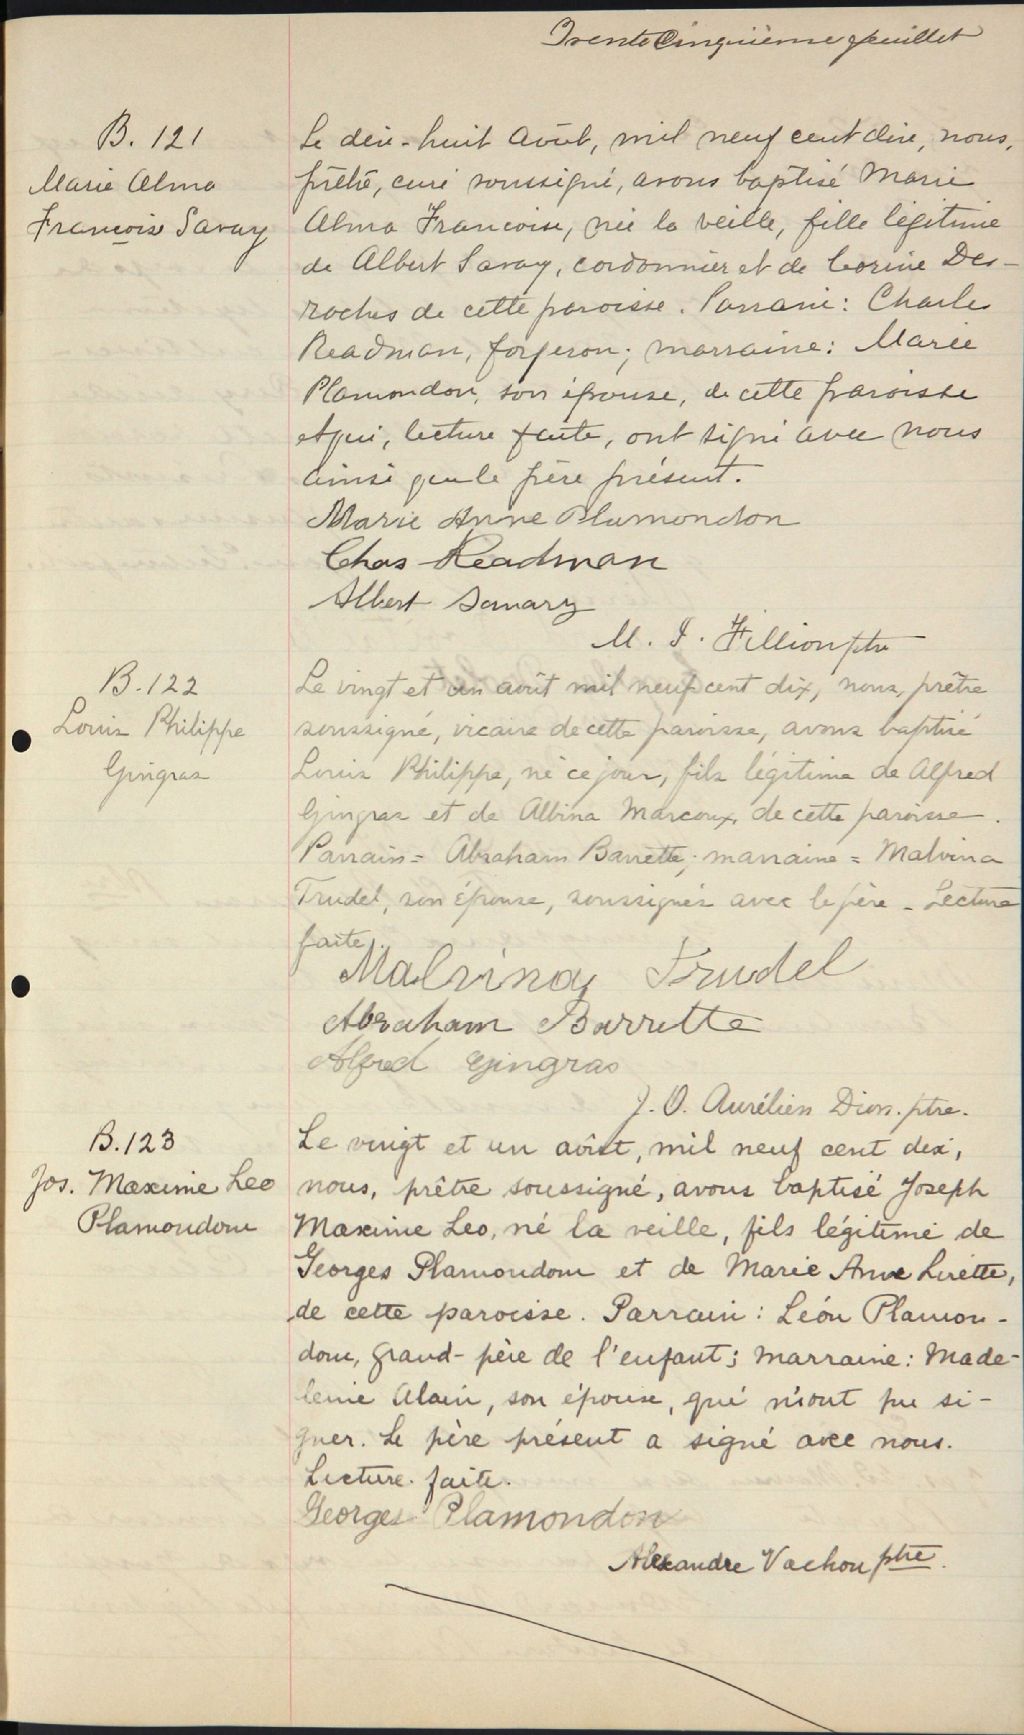 Trente Cinquième feuillet
B. 121
Marie Alma
Françoise Savary
Le dix-huit août, mil neuf cent dix, nous,
prêtre, curé soussigné, avons baptisé Marie
Alma Francoise, née la veille, fille légitime
de Albert Savary, cordonnier et de Corine Des-
roches de cette paroisse. Parrain: Charles
Readman, forgeron; marraine: Marie
Plamondon, son épouse, de cette paroisse
et qui, lecture faite, ont signé avec nous
ainsi que le père présent.
Marie Anne Plamondon
Chas Readman
Albert Savary
M. I. Fillion ptre
B. 122
Louis Philippe
Gingras
Le vingt et un août mil neuf cent dix, nous, prêtre
soussigné, vicaire de cette paroisse, avons baptisé
Louis Philippe, né ce jour, fils légitime de Alfred
Gingras et de Albina Marcoux, de cette paroisse.
Parrain = Abraham Barrette; marraine = Malvina
Trudel, son épouse, soussignés avec le père - Lecture
faite.
Malvina Trudel
Abraham Barrette
Alfred Gingras
J. O. Aurélien Dion. ptre.
B. 123
Jos. Maxime Leo
Plamondom
Le vingt et un août, mil neuf cent dix,
nous, prêtre soussigné, avons baptisé Joseph
Maxime Leo, né la veille, fils légitime de
Georges Plamondom et de Marie Anne Lirette,
de cette paroisse. Parrain: Léon Plamon-
dom, grand-père de l'enfant; marraine: Made-
leine Alain, son épouse, qui n'ont pu si-
gner. Le père présent a signé avec nous.
Lecture faite.
Georges Plamondon
Alexandre Vachon ptre.